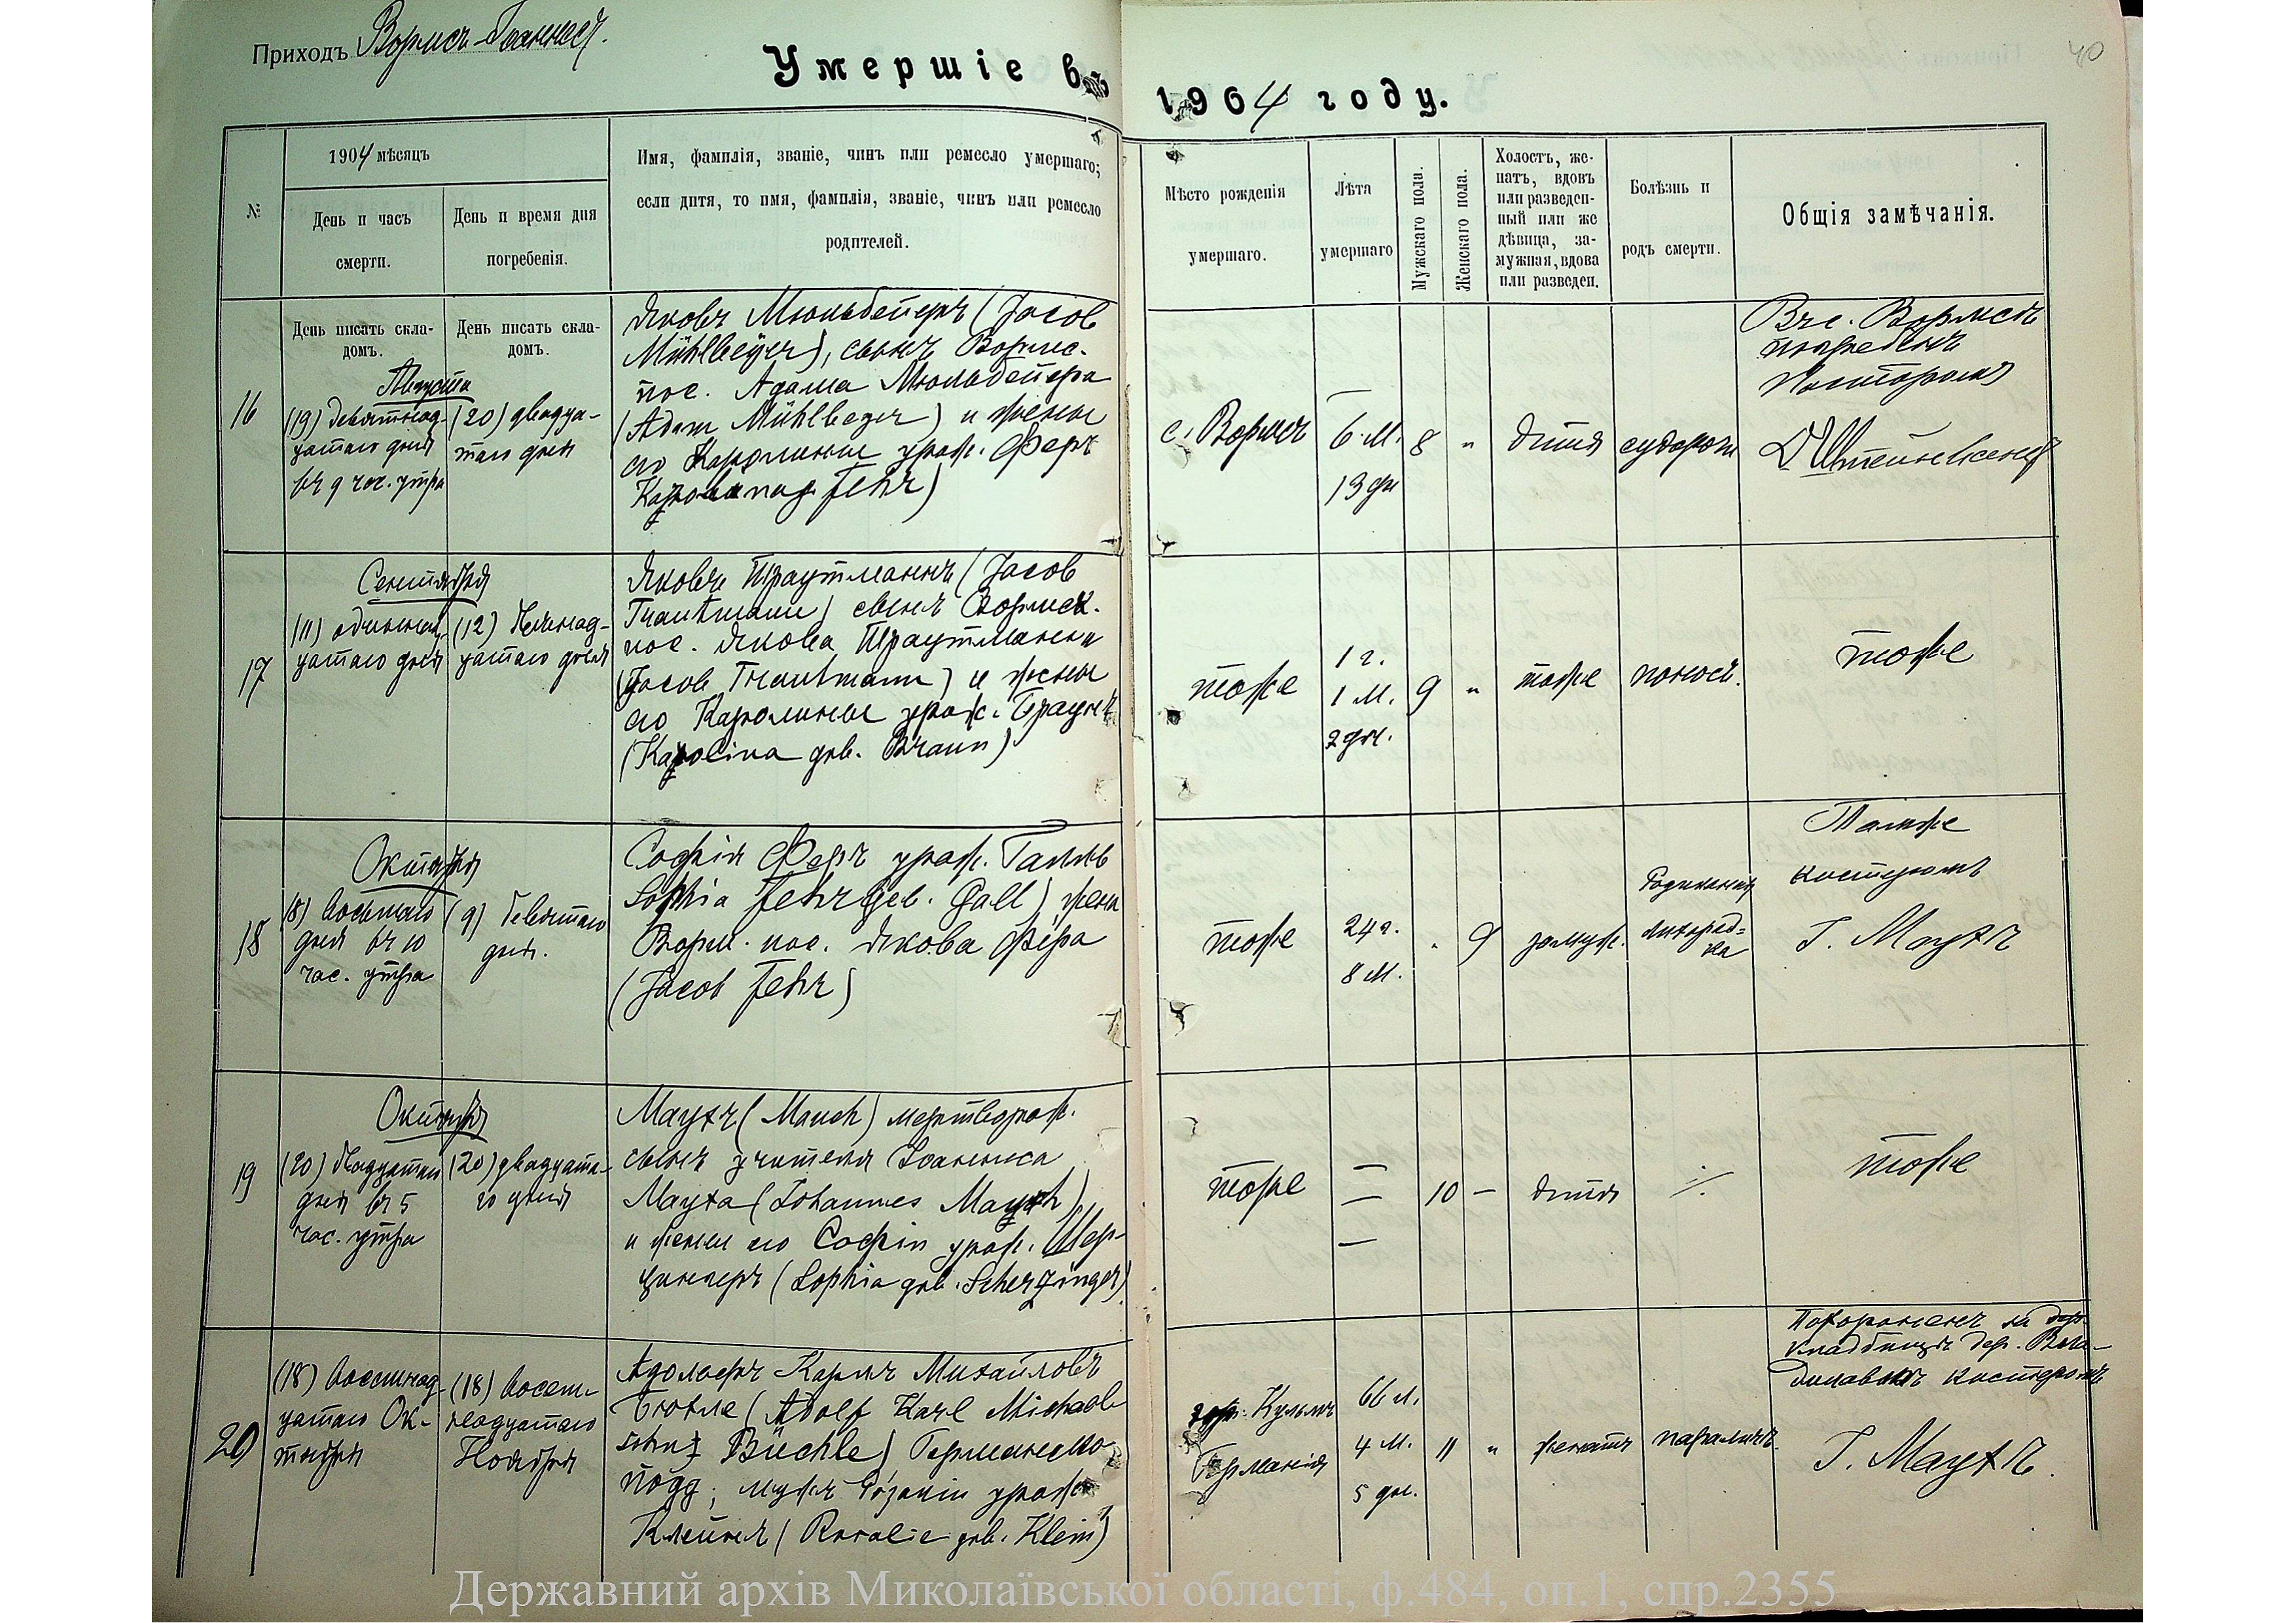 Приходъ Вормсъ-Іоганнест.
Умершіе въ 1904 году.
40
№
1904 мѣсяцъ
День и часъ
смерти.
День и время дня
погребенія.
Имя, фамилія, званіе, чинъ или ремесло умершаго;
если дитя, то имя, фамилія, званіе, чинъ или ремесло
родителей.
Мѣсто рожденія
умершаго.
Лѣта
умершаго
Мужскаго пола.
Женскаго пола.
Холостъ, же-
натъ, вдовъ
или разведен-
ный или же
дѣвица, за-
мужняя, вдова
или разведен.
Болѣзнь и
родъ смерти.
Общія замѣчанія.
День писать скла-
домъ.
День писать скла-
домъ.
16
Августа
(19) девятнад-
цатаго дня
въ 9 час. утра
(20) двадца-
таго дня
Яковъ Мюльбейеръ (Jacob
Mühlbeyer), сынъ Вормс.
пос. Адама Мюльбейера
(Adam Mühlbeyer) и жены
его Каролины урож. Феръ
Karolina geb. Fehr)
с. Вормсъ
6 м.
13 дн
8
"
дитя
судороги
Въ с. Вормсъ
погребенъ
Пасторомъ
17
Сентября
(11) одиннад-
цатаго дня
(12) двѣнад-
цатаго дня
Яковъ Траутманнъ (Jacob
Trautmann) сынъ Вормск.
пос. Якова Траутманна
(Jacob Trautmann) и жены
его Каролины урож. Браунъ
(Karolina geb. Braun)
тоже
1 г.
1 м.
2 дн.
9
"
тоже
поносъ.
тоже
18
Октября
(8) восьмаго
дня въ 10
час. утра
(9) девятаго
дня.
Софія Феръ урож. Галль
Sophia Fehr geb. Gall) жена
Ворм. пос. Якова Фера
(Jacob Fehr)
тоже
24 г.
8 м.
"
9
замуж.
Родильная
лихорад=
ка
Тамже
кистеромъ
І. Маухъ
19
Октября
(20) двадцатаго
дня въ 5
час. утра
(20) двадцата-
го дня
Маухъ (Mauch) мертворож.
сынъ учителя Іоаннеса
Мауха (Johannes Mauch)
и жены его Софіи урож. Шер-
цингеръ (Sophia geb. Scherzinger)
тоже
—
—
—
10
—
дитя
·/.
тоже
20
(18) восемнад-
цатаго Ок-
тября
(18) восем-
надцатаго
Ноября
Адольфъ Карлъ Михайловъ
Бюхле (Adolf Karl Michael-
sohn Büchle) Германско
подд; мужъ Розаліи урож.
Клейнъ (Rosalie geb. Klein)
гор. Кульмъ
Германія
66 л.
4 м.
5 дн.
11
"
женатъ
параличъ.
Похороненъ на дер.
кладбищѣ дер.
кистеромъ
І. Маухъ.
Державний архів Миколаївської області, ф.484, оп.1, спр.2355